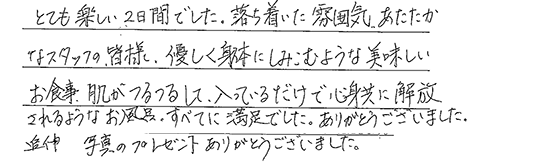 とても楽しい2日間でした。落ち着いた雰囲気、あたたか
なスタッフの皆様、優しく身体にしみこむような美味しい
お食事、肌がつるつるして、入っているだけで心身共に解放
されるようなお風呂。すべてに満足でした。ありがとうございました。
追伸 写真のプレゼントありがとうございました。